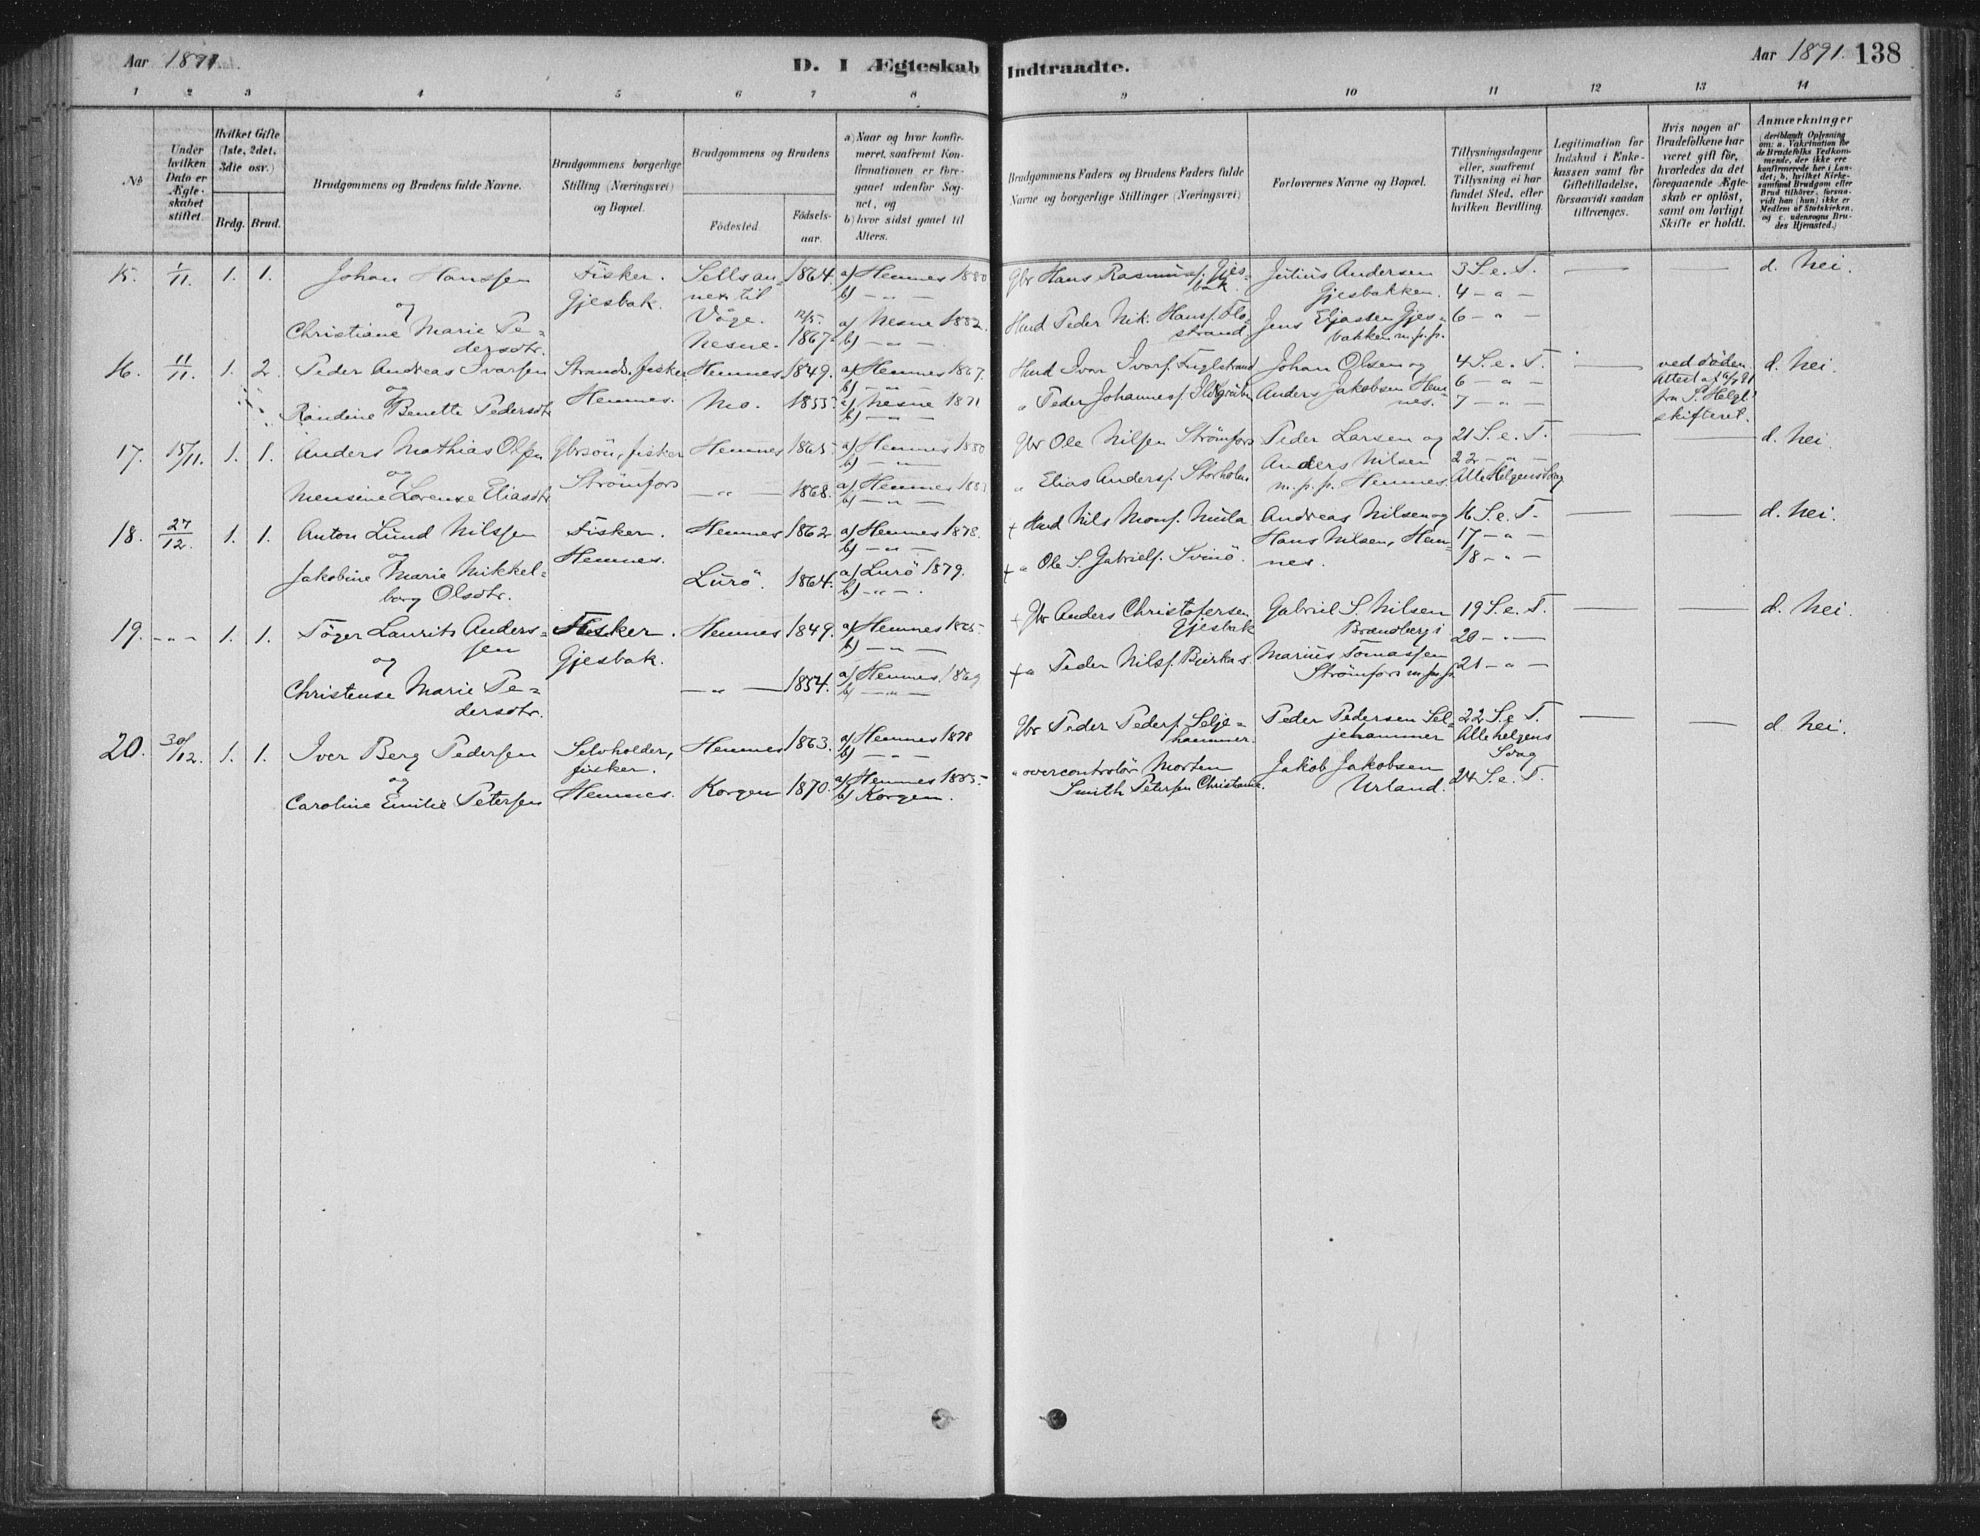 Aar 1891.
D. I Ægteskab Indtraadte.
Aar 1891. 138
1 2 3 4 5 6 7 8 9 10 11 12 13 14
№
Under hvilken Dato er Ægteskabet stiftet.
Hvilket Gifte (1ste, 2det, 3die osv.)
Brdg. Brud.
Brudgommens og Brudens fulde Navne.
Brudgommens borgerlige Stilling (Næringsvei) og Bopæl.
Brudgommens og Brudens
Födested. Födsels-aar.
a) Naar og hvor konfirmeret, saafremt Konfirmationen er foregaaet udenfor Sognet, og
b) hvor sidst gaaet til Alters.
Brudgommens Faders og Brudens Faders fulde Navne og borgerlige Stillinger (Næringsvei)
Forlovernes Navne og Bopæl.
Tillysningsdagene eller, saafremt Tillysning ei har fundet Sted, efter hvilken Bevilling.
Legitimation for Indskud i Enkekassen samt for Giftetilladelse, forsaavidt saadan tiltrænges.
Hvis nogen af Brudefolkene har været gift för, hvorledes da det foregaaende Ægteskab er oplöst, samt om lovligt Skifte er holdt.
Anmærkninger
(deriblandt Oplysning om: a. Vakcination for de Brudefolks Vedkommende, der ikke ere konfirmerede her i Landet; b. hvilket Kirkesamfund Brudgom eller Brud tilhörer, forsaavidt han (hun) ikke er Medlem af Statskirken, og c. udensogns Brudes Hjemsted.)
15. 1/11. 1. 1. Johan Hanssen
og
Christiane Marie Pedersdtr.
Fisker. Gjesbak.
Sellsannex til Våge. 1864. a) Hemnes 1880 b) - „ -
Nesne. 12/5. 1867. a) Nesne 1882. b) - „ -
Gbr Hans Rasmuss. Gjesbak.
Hmd Peder Nik. Hanss. Flostrand
Julius Andersen Gjesbakken.
Jens Eljasten Gjesbakken m.p.p.
3 S. e. T.
4 - „ -
6 - „ -
d. Nei.
16. 11/11. 1. 2. Peder Andreas Ivarsen
og
Randine Benette Pedersdtr
Strands. fisker Hemnes.
Hemnes. 1849. a) Hemnes 1867. b) - „ -
Mo. 1855. a) Nesne 1871 b) - „ -
Hmd Ivar Ivars. Fuglstrand
„ Peder Johanness.
Johan Olsen og
Anders Jakobsen Hemnes.
4 S. e. T.
6 - „ -
7 - „ -
ved döden
Attest af
fra S. Helgl. skifteret.
d. Nei.
17. 15/11. 1. 1. Anders Mathias Olsen
og
Mensine Lorense Eliasdtr
Gbrsön, fisker Strömfors
Hemnes 1865. a) Hemnes 1880 b) - „ -
- „ - 1868. a) Hemnes b) - „ -
Gbr Ole Nilsen Strömfors
„ Elias Anderss. Storholm
Peder Larsen og
Anders Nilsen
m.p.p. Hemnes.
21 S. e. T.
22 - „ -
Alle Helgens Søng
d. Nei.
18. 27/12. 1. 1. Anton Lund Nilssen
og
Jakobine Marie Mikkelborg Olsdtr.
Fisker. Hemnes.
Hemnes 1862 a) Hemnes 1878. b) - „ -
Lurö. 1864. a) Lurö 1879. b) - „ -
+ Hmd Nils Mons. Mula
+ „ Ole S. Gabriels. Svinö.
Andreas Nilsen og
Hans Nilsen, Hemnes.
16 S. e. T.
17 - „ -
18 - „ -
d. Nei.
19. - „ - 1. 1. Töger Laurits Anderssen
og
Christense Marie Pedersdtr.
Fisker. Gjesbak.
Hemnes 1849. a) Hemnes 1865. b) - „ -
- „ - 1854. a) Hemnes 1869 b) - „ -
+ Gbr Anders Christofersen Gjesbak
+ „ Peder Nilss. Bjerkas
Gabriel S. Nilsen Brændbergi
Marius Tomassen Strömfors m.p.p.
19 S. e. T.
20 - „ -
21 - „ -
d. Nei.
20. 30/12. 1. 1. Iver Berg Pedersen
og
Caroline Emilie Petersen
Selvholder, fisker. Hemnes.
Hemnes 1863. a) Hemnes 1878 b) - „ -
Korgen 1870. a) Hemnes 1885. b) Korgen.
Gbr Peder Peders. Seljehammer.
„ overcontrolör Morten Smith Petersen Christiania.
Peder Pedersen Seljehammer
Jakob Jakobsen Urland.
22 S. e. T.
Alle helgens Søng
24 S. e. T.
d. Nei.